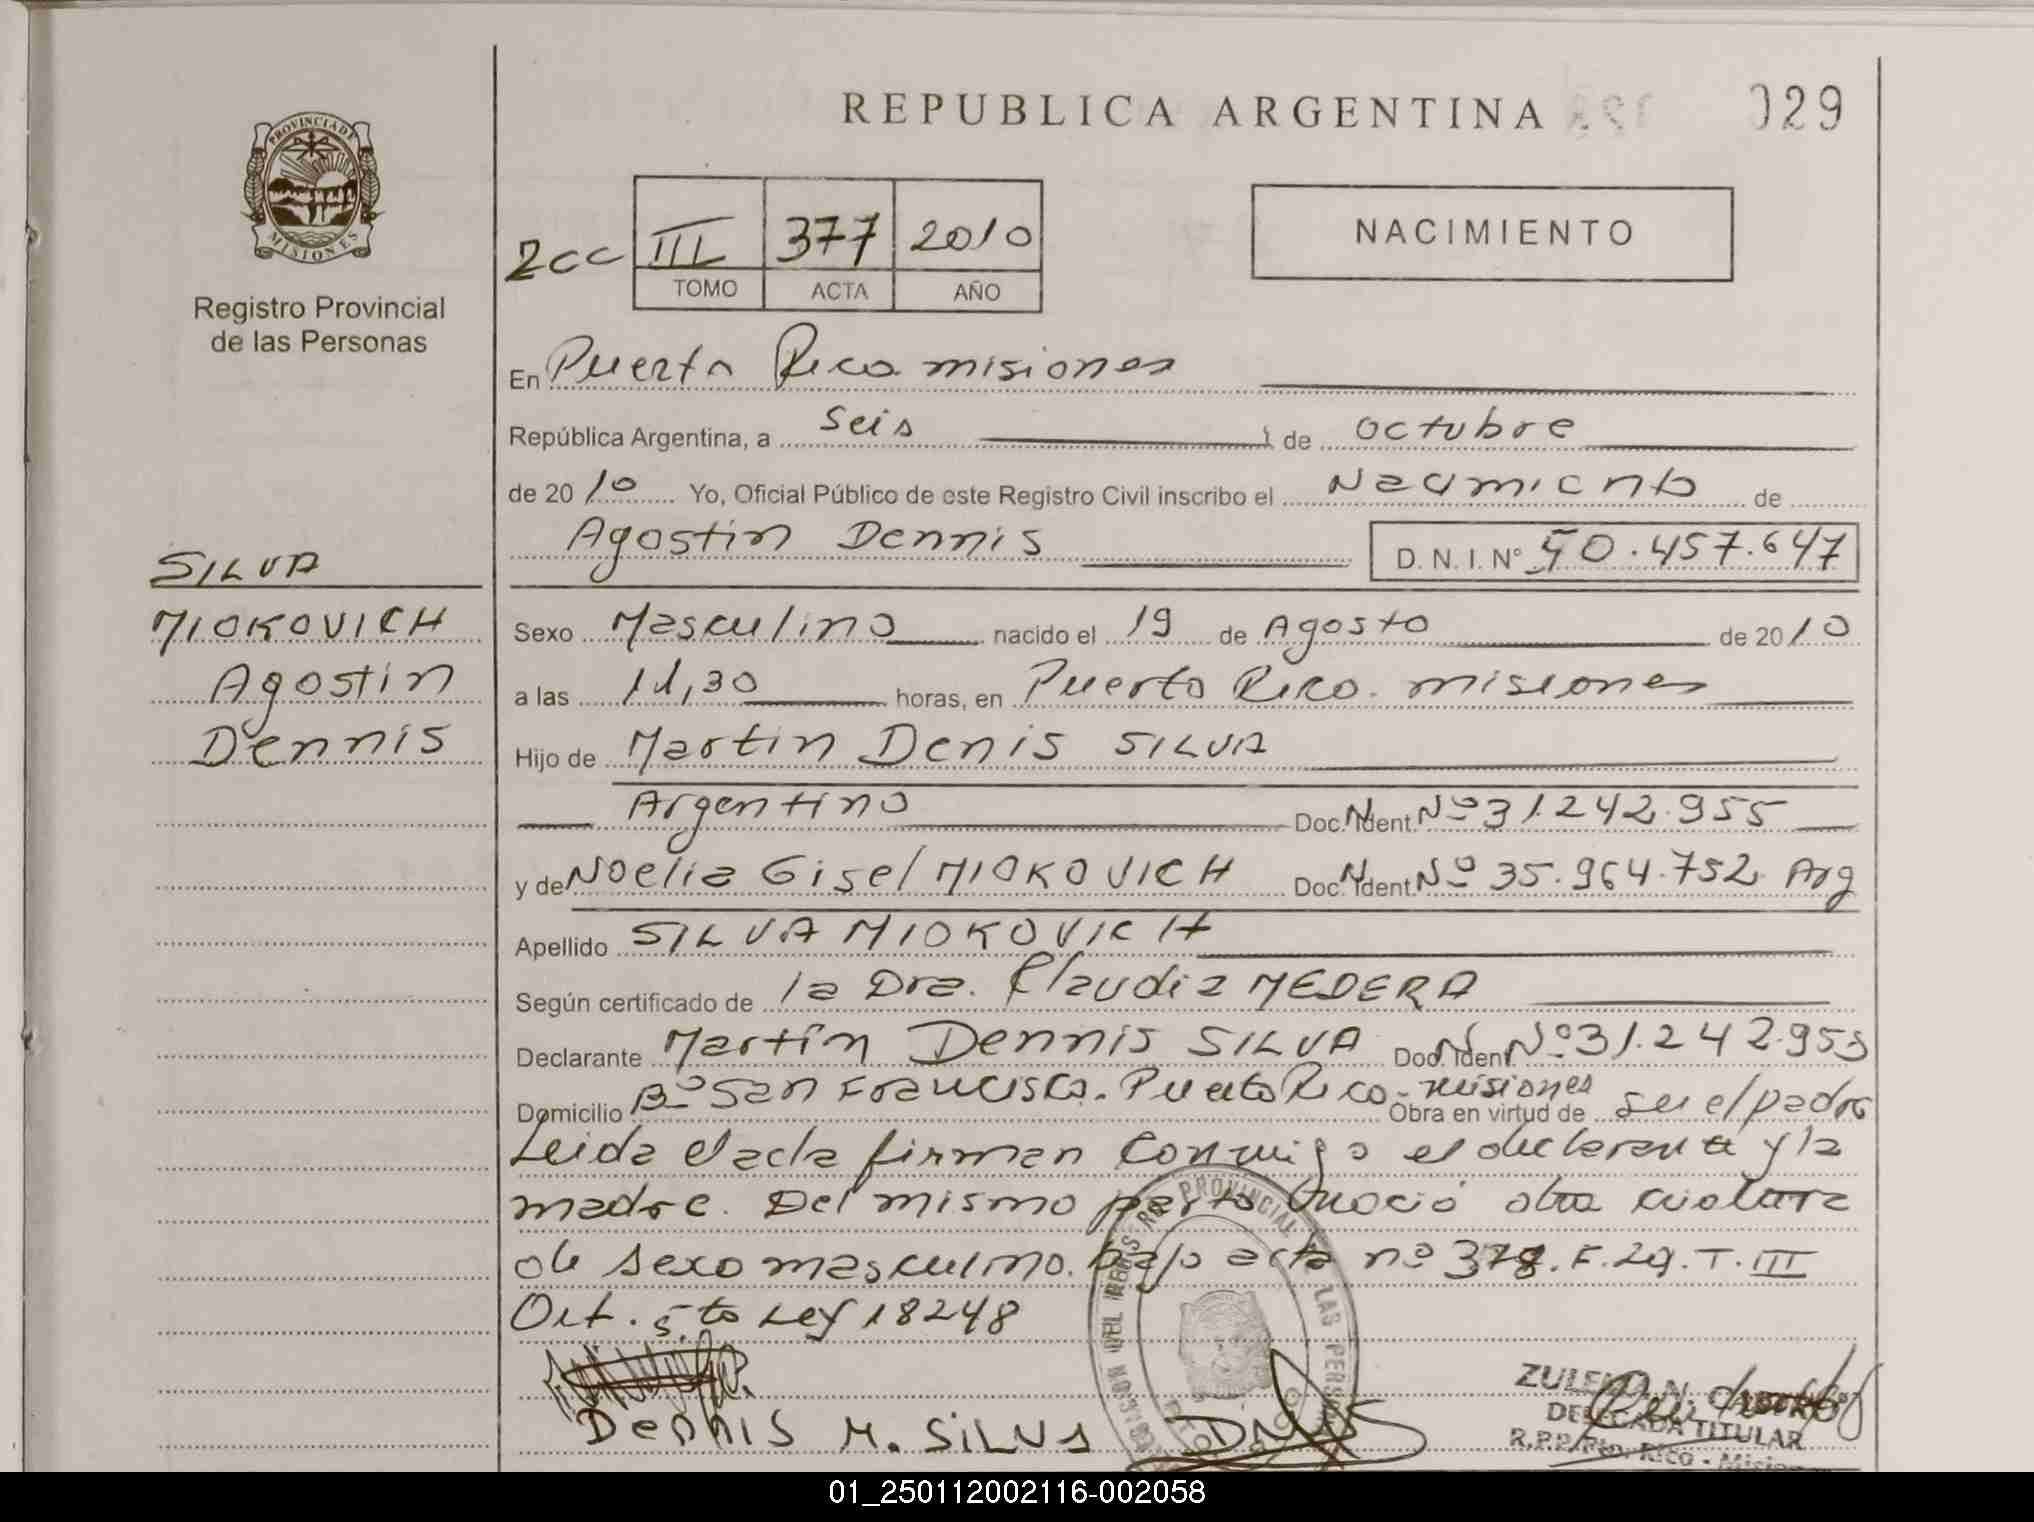 REPUBLICA ARGENTINA
029
PROVINCIA DE
MISIONES
Registro Provincial
de las Personas
2cc III 377 2010
TOMO ACTA AÑO
NACIMIENTO
En Puerto Rico misiones
República Argentina, a seis de octubre
de 2010 Yo, Oficial Público de este Registro Civil inscribo el Nacimiento de
Agostin Dennis D. N. I. Nº 50.457.647
SILVA
MIOKOVICH
Agostin
Dennis
Sexo Masculino nacido el 19 de Agosto de 2010
a las 11,30 horas, en Puerto Rico. misiones
Hijo de Martin Denis SILVA
Argentino Doc. Ident. Nº 31.242.955
y de Noelia Gisel MIOKOVICH Doc. Ident. Nº 35.964.752 Arg
Apellido SILVA MIOKOVICH
Según certificado de la Dra. Claudia MEDERA
Declarante Martín Dennis SILVA Doc. Ident Nº 31.242.955
Domicilio Bº San Francisco. Puerto Rico. misiones Obra en virtud de ser el padre
Leida el acta firman conmigo el declarante y la
madre. Del mismo parto nació otra criatura
de sexo masculino. bajo acta nº 378. F. 29. T. III
Art. 5to Ley 18248
Dennis M. SiLVA
DELEGADA TITULAR
R.P.P. Pto. Rico - Misiones
01_250112002116-002058